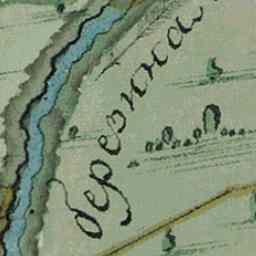 березиная